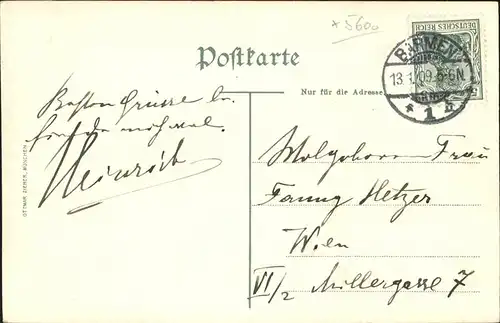 × 5600
DEUTSCHES REICH
Postkarte
BARMEN
13.1.09.5-6N.
* 1 b
Nur für die Adresse
Besten Grüsse
Heinrich
OTTMAR ZIEHER, MÜNCHEN
Wolgeboren Frau
Fanny Hetzer
Wien
VI/2 Millergasse 7